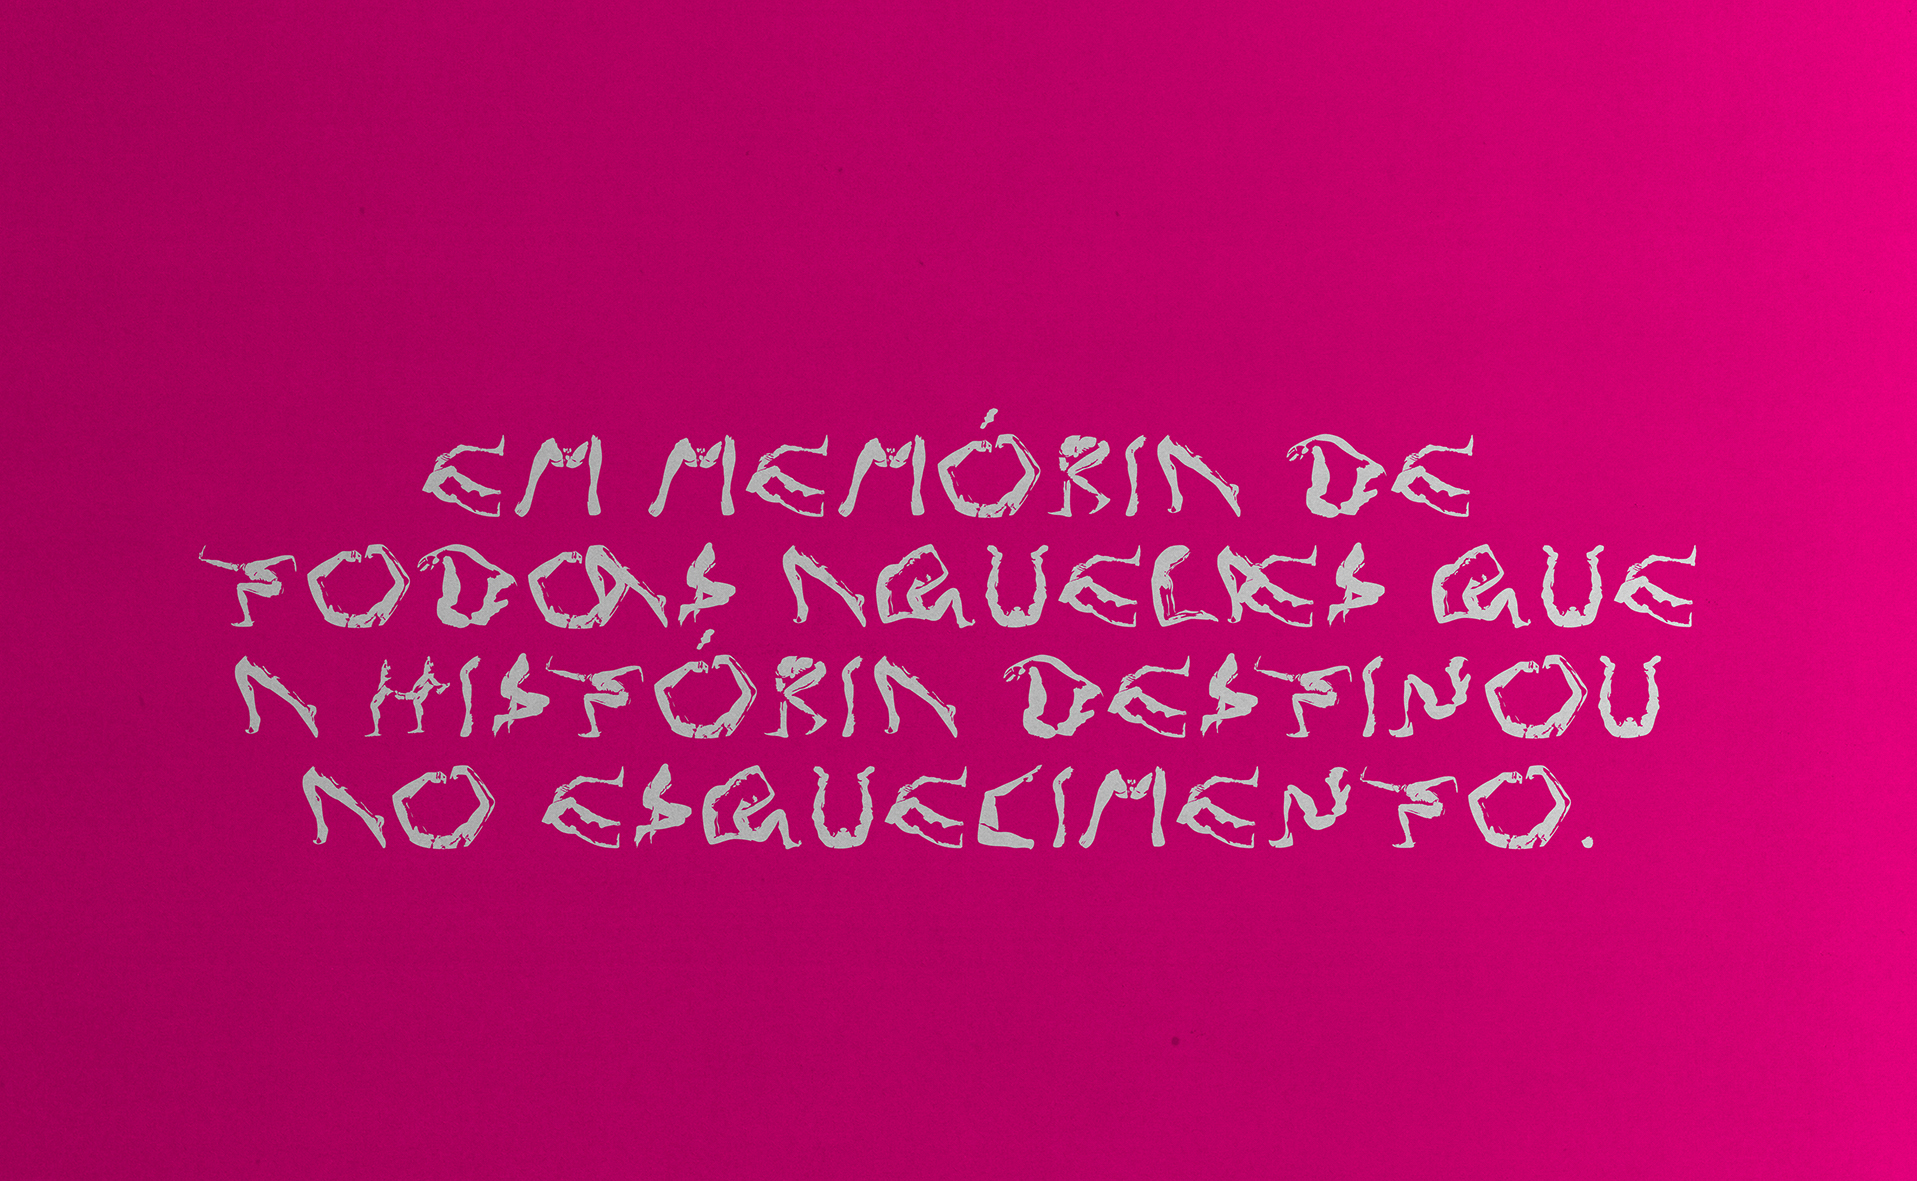 EM MEMÓRIA DE
TODOAS AQUELAES QUE
A HISTÓRIA DESTINOU
AO ESQUECIMENTO.